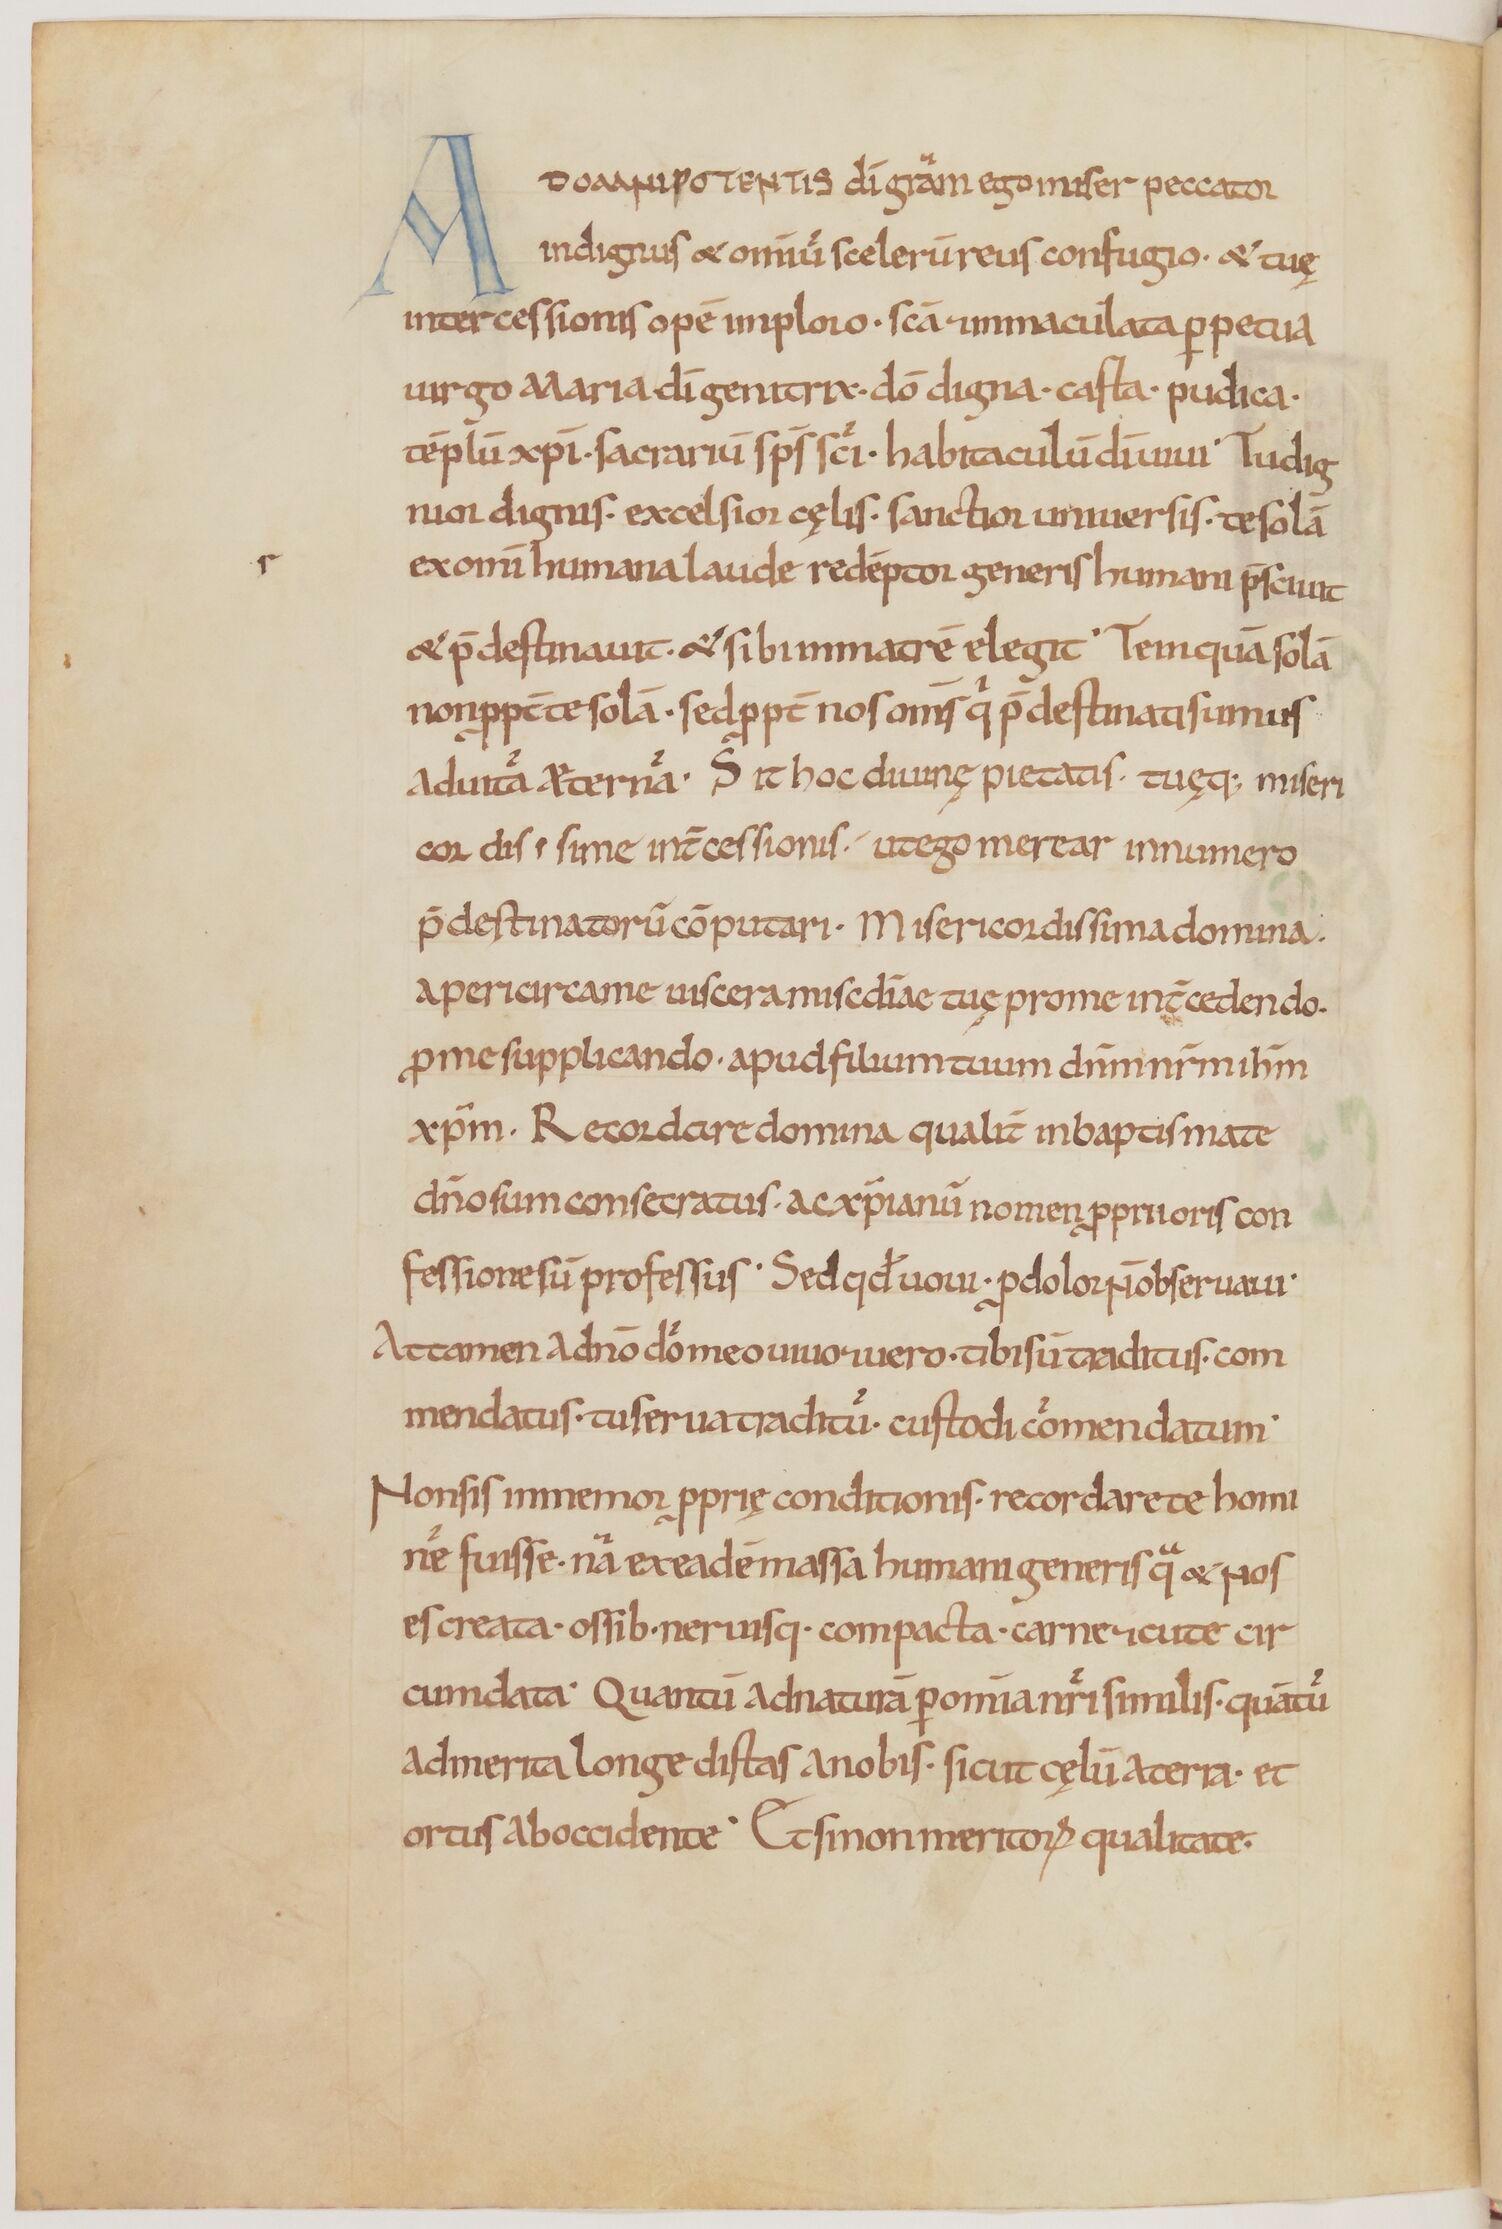 ADOMNIPOTENTIS dī grām ego miser peccator
indignus & omīū scelerū reus confugio· & tuę
intercessionis opē imploro· scā ⁊ immaculata ꝑpetua
uirgo Maria· dī genitrix· dō digna· casta· pudica·
tēplū xp̄ī· sacrariū sp̄s sc̄i· habitaculū dīuini· Tu dig
nior dignis· excelsior cęlis· sanctior uniuersis· te solā
ex omī humana laude redēptor generis humani p̄sciuit
& p̄destinauit· & sibi in matrē elegit· Tem quā solā
non ꝓpt̄ te solā· sed ꝓpt̄ nos om̄s qͥ p̄destinati sumus
ad uitā æternā· Sit hoc diuinę pietatis· tuęq; miseri
cordissime int̄cessionis· ut ego merear in numero
p̄destinatorū cōputari· Misericordissima domina·
aperi circa me uiscera misc̄diae tuę pro me int̄cedendo·
ꝓ me supplicando· apud filium tuum dn̄m nr̄m ih̄m
xp̄m· Recordare domina qualit̄ in baptismate
dn̄o sum consecratus· ac xp̄ianū nomen ꝓprii oris con
fessione sū professus· Sed qd̄ uoui· ꝓ dolor n̄ obseruaui·
Attamen a dn̄o dō meo uiuo ⁊ uero· tibi sū traditus· com
mendatus· tu serua traditū· custodi cōmendatum·
Non sis inmemor ꝓprię conditionis· recordare te homi
nē fuisse· nā ex eadē massa humani generis qͣ & nos
es creata· ossib· neruisq· compacta· carne ⁊ cute cir
cumdata· Quantū ad naturā ꝑ omīa nr̄i similis· quātū
ad merita longe distas a nobis· sicut cęlū a terra· et
ortus ab occidente· Et si non meritoꝝ qualitate·